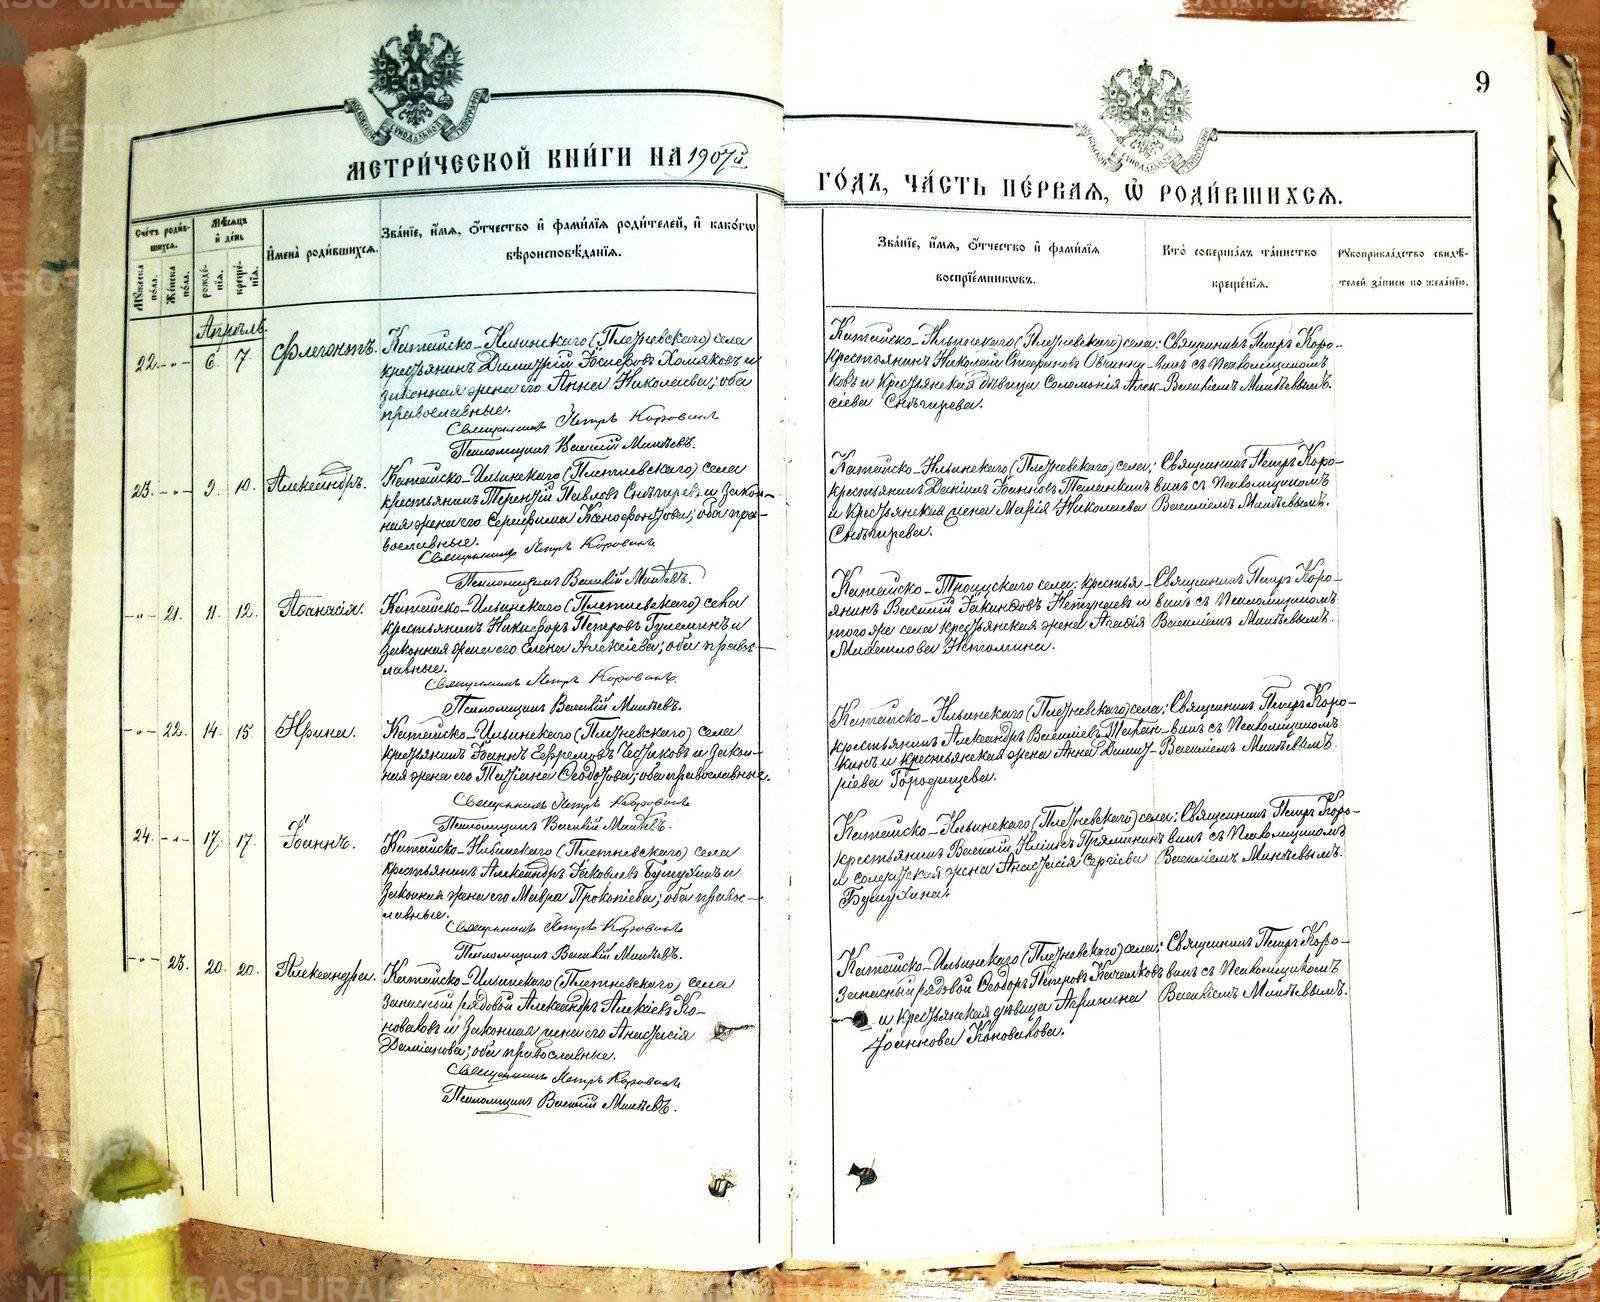 9
МЕТРИ́ЧЕСКОЙ КНИ́ГИ НА 1907й
ГО́ДЪ, ЧА́СТЬ ПЕ́РВАЯ, Ѡ РОДИ́ВШИХСЯ.
Сче́тъ роди́в-
шихся.
Му́жеска по́ла.
Же́нска по́ла.
Мѣ́сяцъ и де́нь
рожде́-
нія.
креще́-
нія.
И́мена роди́вшихся.
Зва́ніе, и́мя, о́тчество и фами́лія роди́телей, и како́гѡ
вѣроисповѣ́данія.
Зва́ніе, и́мя, о́тчество и фами́лія
воспріе́мниковъ.
Кто̀ соверша́лъ та́инство
креще́нія.
Рукоприкла́дство свидѣ́-
телей за́писи по жела́нію.
Апрѣль.
22. -"- 6. 7. Флегонтъ.
Катайско-Ильинскаго (Плетневскаго) села
крестьянинъ Димитрій Іосифовъ Хомяковъ и
законная жена его Анна Николаева; оба
православные.
Священникъ Петръ Коровинъ
Псаломщикъ Василій Минѣевъ.
Катайско-Ильинскаго (Плетневскаго) села:
крестьянинъ Николай Овчинни-
ковъ и крестьянская дѣвица Соломонія Алек-
сіева Снѣгирева.
Священникъ Петръ Коро-
винъ съ псаломщикомъ
Василіемъ Минѣевымъ.
23. -"- 9. 10. Александръ.
Катайско-Ильинскаго (Плетневскаго) села
крестьянинъ Терентій Павловъ Снѣгиревъ и закон-
ная жена его Серафима Ксенофонтова; оба пра-
вославные.
Священникъ Петръ Коровинъ
Псаломщикъ Василій Минѣевъ.
Катайско-Ильинскаго (Плетневскаго) села:
крестьянинъ Даніилъ Іоанновъ
и крестьянская жена Марія Николаева
Снѣгирева.
Священникъ Петръ Коро-
винъ съ псаломщикомъ
Василіемъ Минѣевымъ.
-"- 21. 11. 12. Аѳанасія.
Катайско-Ильинскаго (Плетневскаго) села
крестьянинъ Никифоръ Петровъ и
законная жена его Елена Алексіева; оба право-
славные.
Священникъ Петръ Коровинъ.
Псаломщикъ Василій Минѣевъ.
Катайско-Троицкаго села: крестья-
янинъ Василій и
того же села крестьянская жена Агафія
Михаилова Истомина.
Священникъ Петръ Коро-
винъ съ псаломщикомъ
Василіемъ Минѣевымъ.
-"- 22. 14. 15. Ирина.
Катайско-Ильинскаго (Плетневскаго) села
крестьянинъ Іоаннъ Ефремовъ и закон-
ная жена его Татіана Ѳеодотова; оба православные.
Священникъ Петръ Коровинъ
Псаломщикъ Василій Минѣевъ.
Катайско-Ильинскаго (Плетневскаго) села:
крестьянинъ Александръ Василіевъ
и крестьянская жена Анна
Городищева.
Священникъ Петръ Коро-
винъ съ псаломщикомъ
Василіемъ Минѣевымъ.
24. -"- 17. 17. Іоаннъ.
Катайско-Ильинскаго (Плетневскаго) села
крестьянинъ Александръ Іаковлевъ и
законная жена его Мавра Прокопіева; оба право-
славные.
Священникъ Петръ Коровинъ
Псаломщикъ Василій Минѣевъ.
Катайско-Ильинскаго (Плетневскаго) села:
крестьянинъ Василій Иліинъ Прямининъ
и солдатская жена Анастасія Сергіева
Священникъ Петръ Коро-
винъ съ псаломщикомъ
Василіемъ Минѣевымъ.
-"- 23. 20. 20. Александра.
Катайско-Ильинскаго (Плетневскаго) села
запасный рядовой Александръ Алексіевъ Ко-
новаловъ и законная жена его Анастасія
Даміанова; оба православные.
Священникъ Петръ Коровинъ
Псаломщикъ Василій Минѣевъ.
Катайско-Ильинскаго (Плетневскаго) села:
запасный рядовой Ѳеодоръ Петровъ Качалковъ
и крестьянская дѣвица Агрипина
Іоаннова Коновалова.
Священникъ Петръ Коро-
винъ съ псаломщикомъ
Василіемъ Минѣевымъ.
METRIKI.GASO-URAL.RU